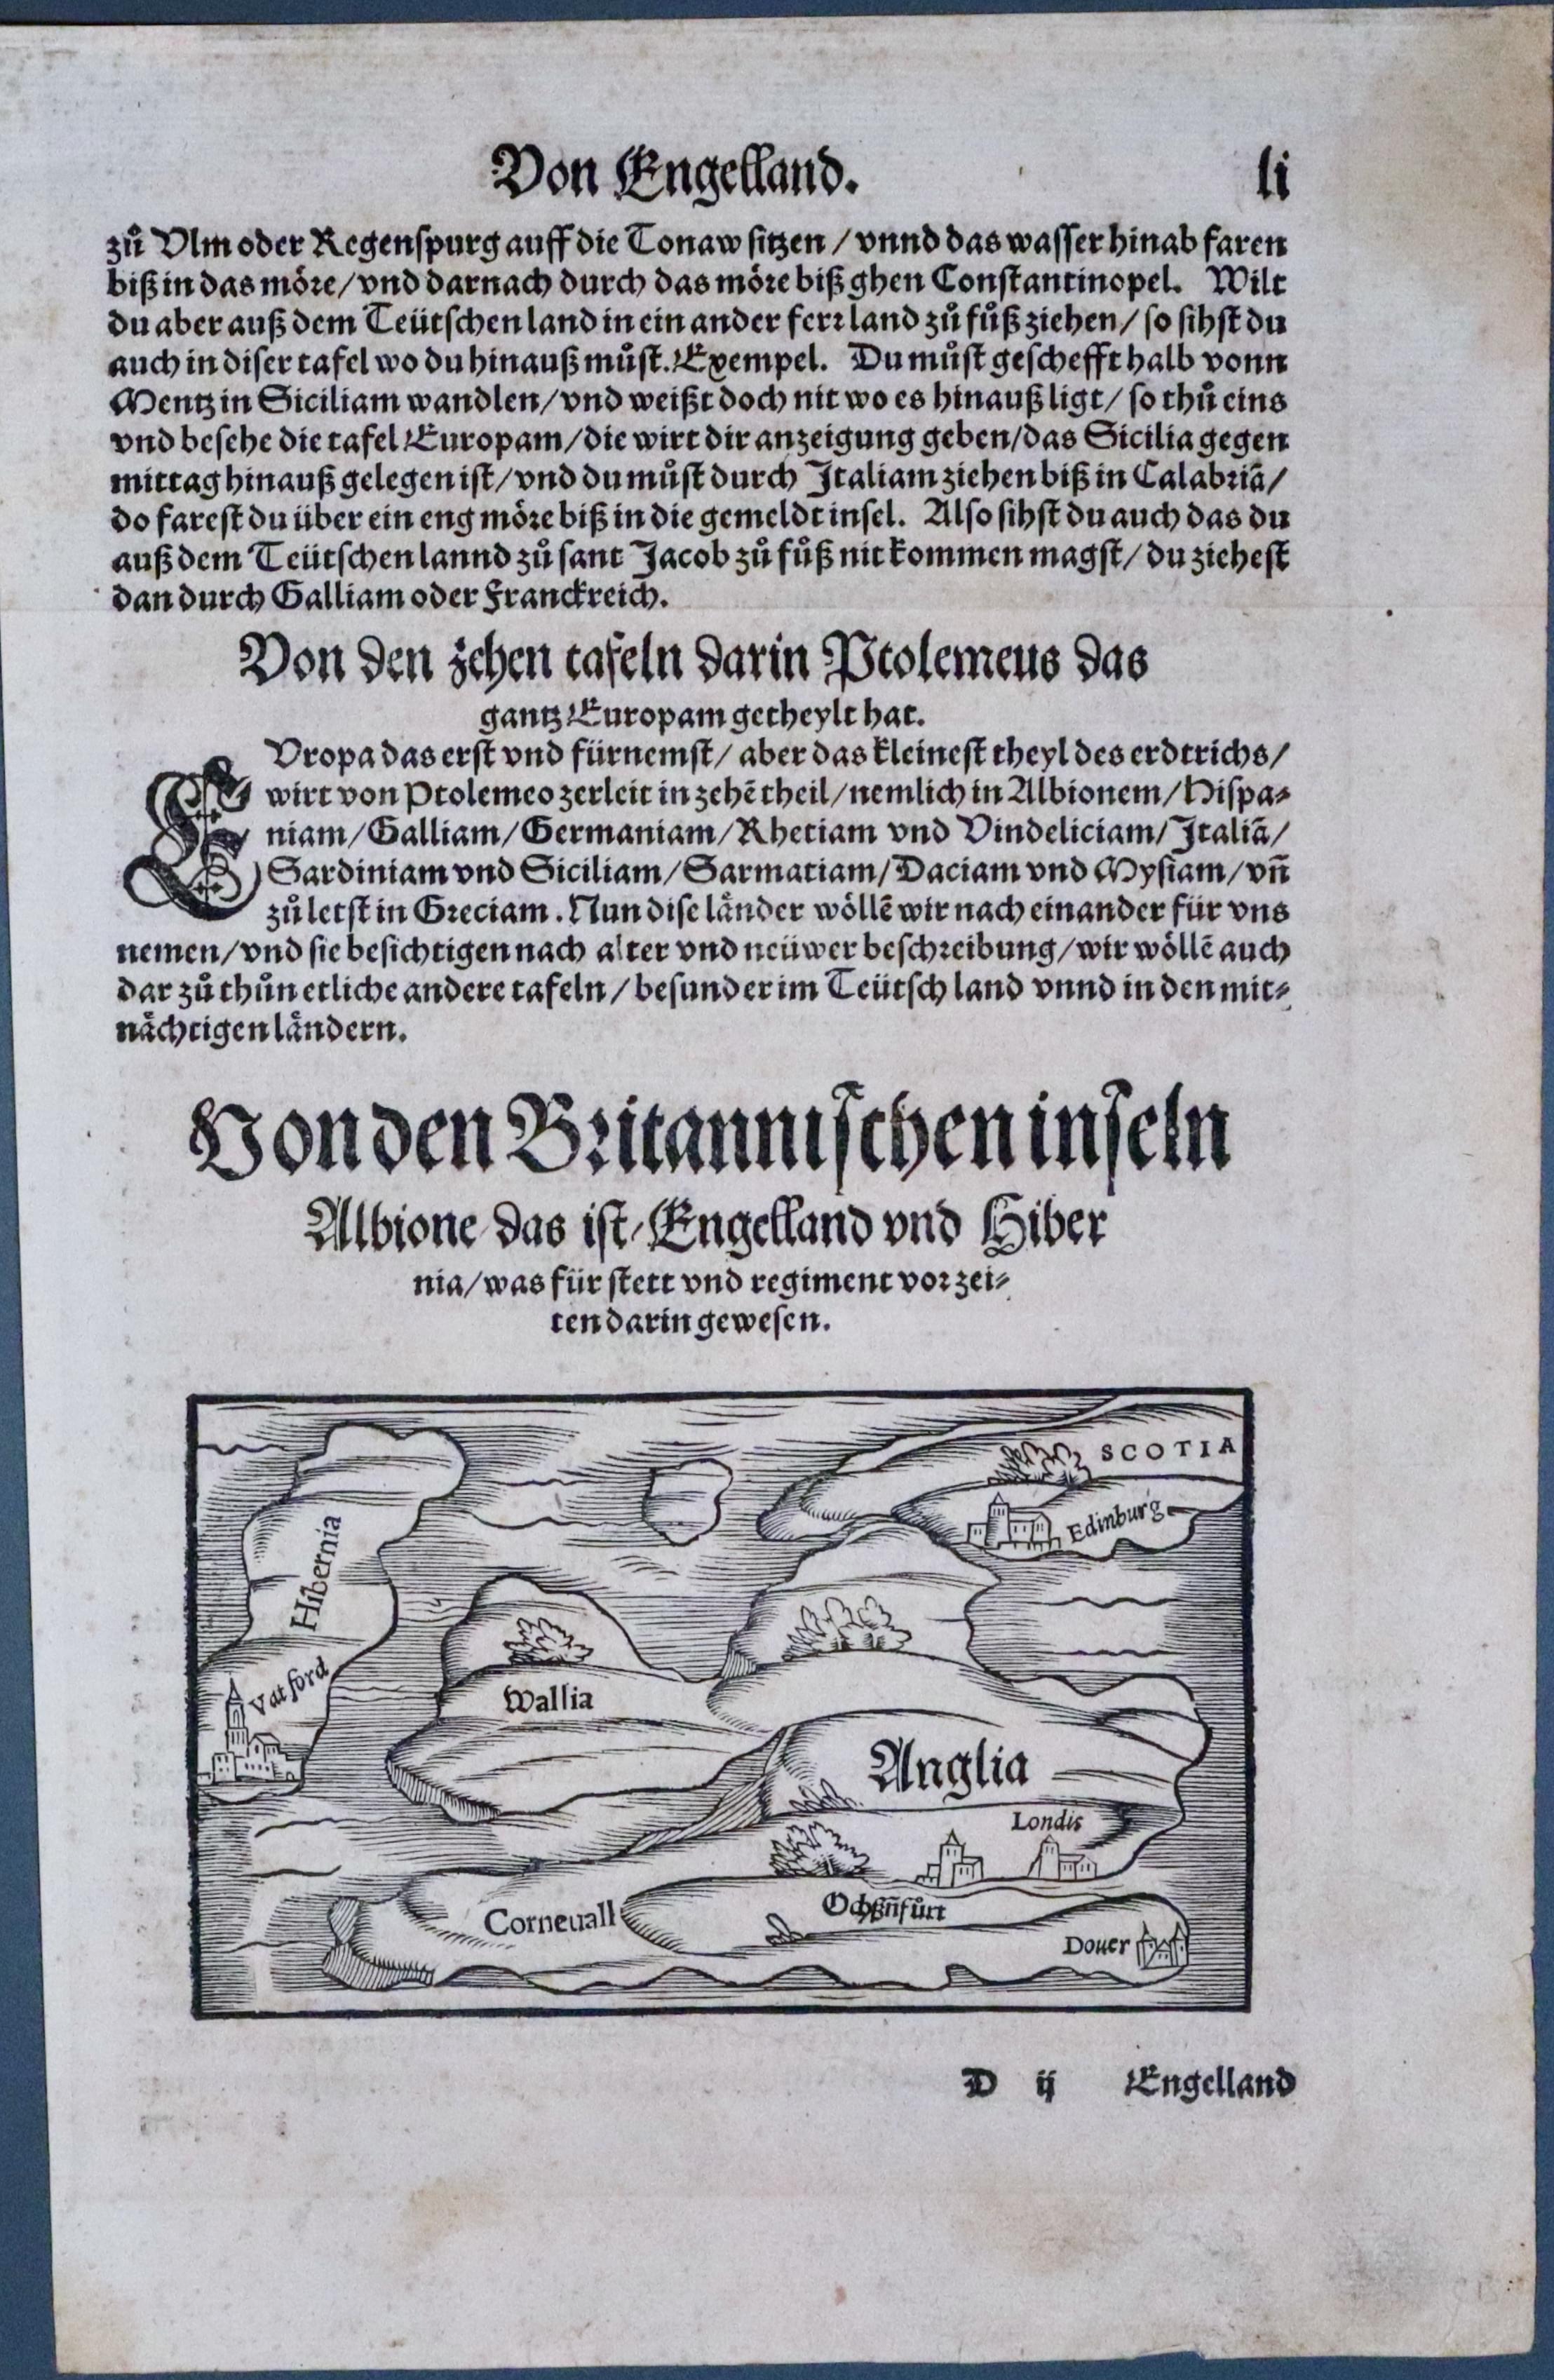 Von Engelland. li
zů Vlm oder Regenſpurg auff die Tonaw ſitzen / vnnd das waſſer hinab faren
biß in das möre / vnd darnach durch das möre biß ghen Conſtantinopel. Wilt
du aber auß dem Teütſchen land in ein ander ferr land zů fůß ziehen / ſo ſihſt du
auch in diſer tafel wo du hinauß můſt. Exempel. Du můſt geſchefft halb vonn
Mentz in Siciliam wandlen / vnd weißt doch nit wo es hinauß ligt / ſo thů eins
vnd beſehe die tafel Europam / die wirt dir anzeigung geben / das Sicilia gegen
mittag hinauß gelegen iſt / vnd du můſt durch Italiam ziehen biß in Calabriā /
do fareſt du über ein eng möre biß in die gemeldt inſel. Alſo ſihſt du auch das du
auß dem Teütſchen lannd zů ſant Jacob zů fůß nit kommen magſt / du zieheſt
dan durch Galliam oder Franckreich.
Von den zehen tafeln darin Ptolemeus das
gantz Europam getheylt hat.
EVropa das erſt vnd fürnemſt / aber das kleineſt theyl des erdtrichs /
wirt von Ptolemeo zerleit in zehē theil / nemlich in Albionem / Hiſpa⸗
niam / Galliam / Germaniam / Rhetiam vnd Vindeliciam / Italiā /
Sardiniam vnd Siciliam / Sarmatiam / Daciam vnd Myſiam / vn̄
zů letſt in Greciam. Nun diſe länder wöllē wir nach einander für vns
nemen / vnd ſie beſichtigen nach alter vnd neüwer beſchreibung / wir wöllē auch
dar zů thůn etliche andere tafeln / beſunder im Teütſch land vnnd in den mit⸗
nächtigen ländern.
Von den Britanniſchen inſeln
Albione das iſt / Engelland vnd Hiber
nia / was für ſtett vnd regiment vor zei⸗
ten darin geweſen.
SCOTIA
Edinburg
Hibernia
Vatford
Wallia
Anglia
Londis
Ochßn̄fůrt
Corneuall
Douer
D ij Engelland